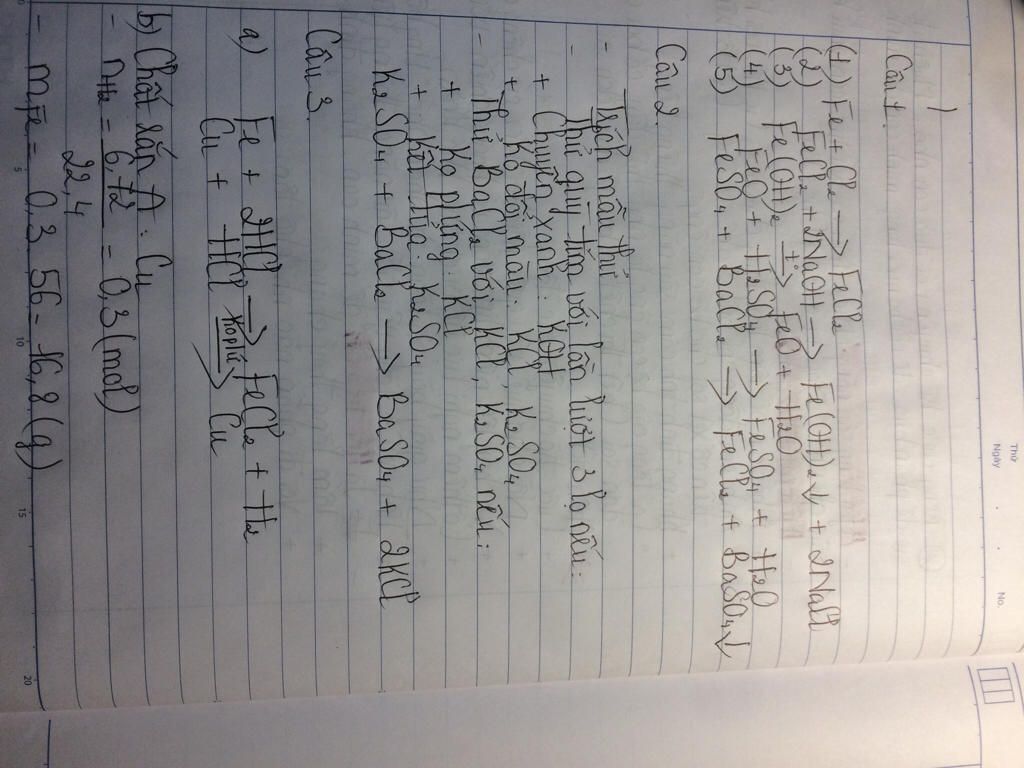 Thứ
Ngày
No.
1
Câu 1.
(1) Fe + Cl₂ → FeCl₂
(2) FeCl₂ + 2NaOH → Fe(OH)₂↓ + 2NaCl
(3) Fe(OH)₂ t°→ FeO + H₂O
(4) FeO + H₂SO₄ → FeSO₄ + H₂O
(5) FeSO₄ + BaCl₂ → FeCl₂ + BaSO₄↓
Câu 2
- Trích mẫu thử
- Thử quỳ tím với lần lượt 3 lọ nếu:
+ Chuyển xanh: KOH
+ Ko đổi màu: KCl, K₂SO₄
- Thử BaCl₂ với KCl, K₂SO₄ nếu:
+ Ko p/ứng: KCl
+ Kết tủa: K₂SO₄
K₂SO₄ + BaCl₂ → BaSO₄ + 2KCl
Câu 3.
a) Fe + 2HCl → FeCl₂ + H₂
Cu + HCl → Cu
b) Chất rắn A: Cu
- nH₂ = 6,72 / 22,4 = 0,3 (mol)
- mFe = 0,3 56 = 16,8 (g)
5
10
15
20